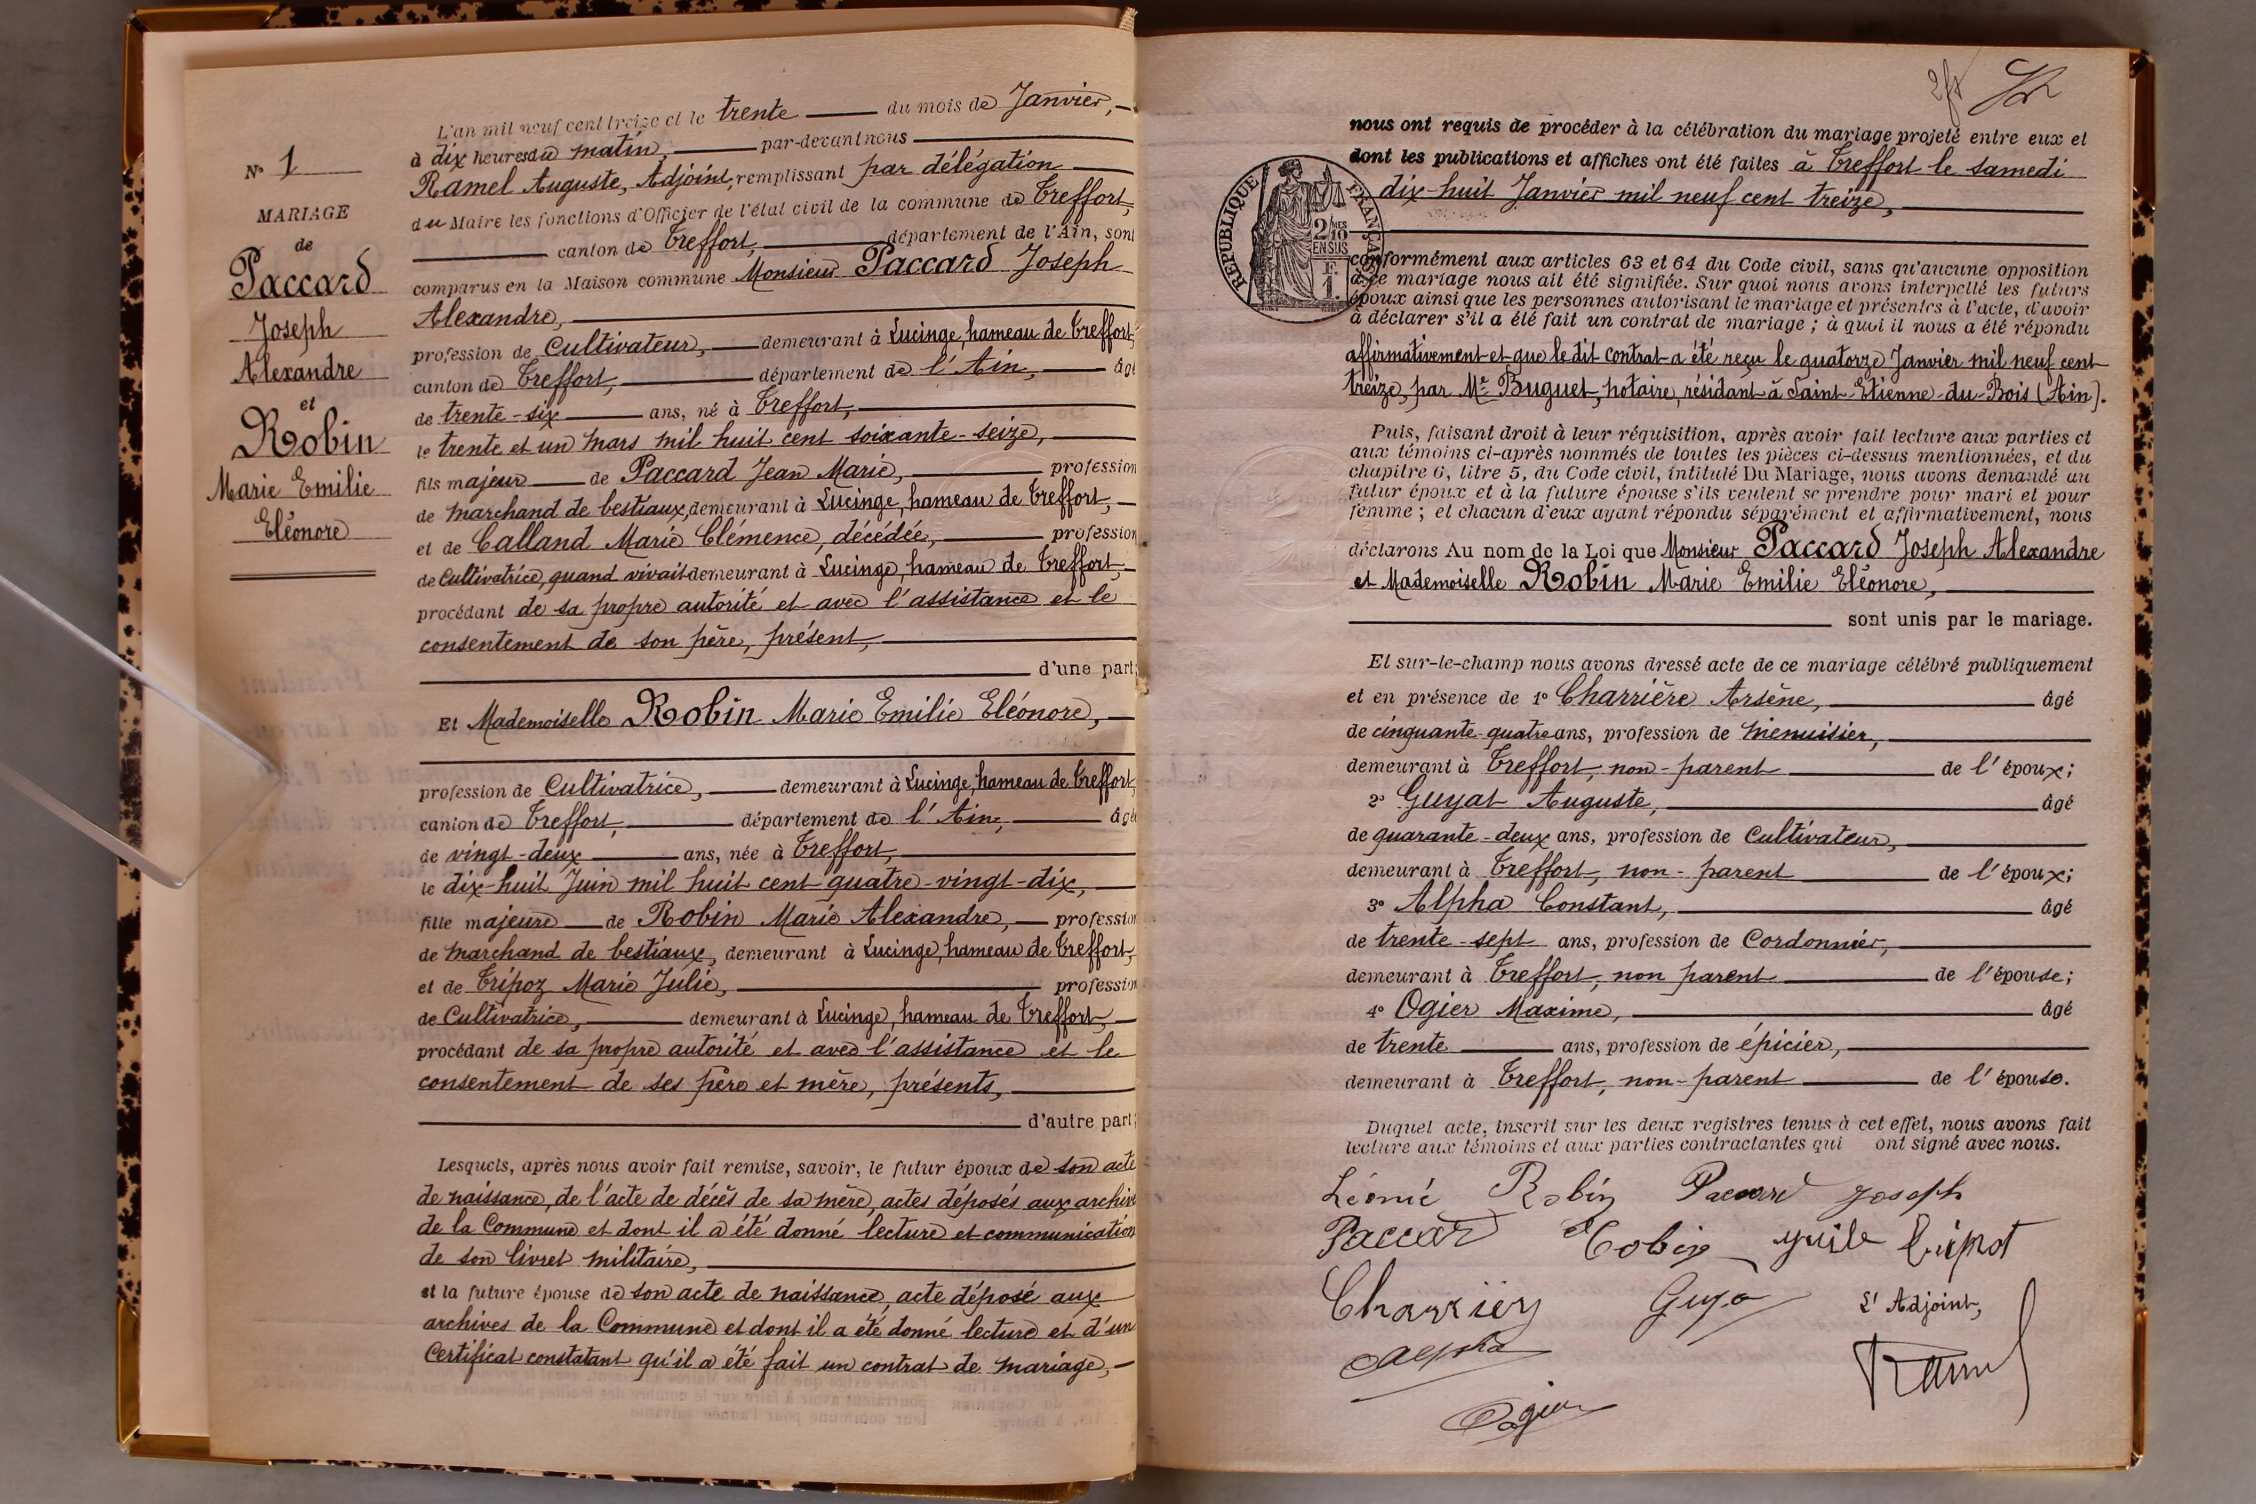 L'an mil neuf cent treize et le trente du mois de Janvier,
à dix heures du matin, par-devant nous
Ramel Auguste, Adjoint, remplissant par délégation
du Maire les fonctions d'Officier de l'état civil de la commune de Treffort,
canton de Treffort, département de l'Ain, sont
comparus en la Maison commune Monsieur Paccard Joseph
Alexandre,
profession de Cultivateur, demeurant à Lucinge, hameau de Treffort,
canton de Treffort, département de l'Ain, âgé
de trente-six ans, né à Treffort,
le trente et un mars mil huit cent soixante-seize,
fils majeur de Paccard Jean Marie, profession
de marchand de bestiaux, demeurant à Lucinge, hameau de Treffort,
et de Calland Marie Clémence, décédée, profession
de Cultivatrice, quand vivait demeurant à Lucinge, hameau de Treffort,
procédant de sa propre autorité et avec l'assistance et le
consentement de son père, présent,
d'une part;
Et Mademoiselle Robin Marie Emilie Eléonore,
profession de Cultivatrice, demeurant à Lucinge, hameau de Treffort,
canton de Treffort, département de l'Ain, âgé
de vingt-deux ans, née à Treffort,
le dix-huit Juin mil huit cent quatre-vingt-dix,
fille majeure de Robin Marie Alexandre, profession
de marchand de bestiaux, demeurant à Lucinge, hameau de Treffort,
et de Tripoz Marie Julie, profession
de Cultivatrice, demeurant à Lucinge, hameau de Treffort,
procédant de sa propre autorité et avec l'assistance et le
consentement de ses père et mère, présents,
d'autre part;
Lesquels, après nous avoir fait remise, savoir, le futur époux de son acte
de naissance, de l'acte de décès de sa mère, actes déposés aux archives
de la Commune et dont il a été donné lecture et communication
de son livret militaire,
et la future épouse de son acte de naissance, acte déposé aux
archives de la Commune et dont il a été donné lecture et d'un
Certificat constatant qu'il a été fait un contrat de mariage,
N° 1
MARIAGE
de
Paccard
Joseph
Alexandre
et
Robin
Marie Emilie
Eléonore
nous ont requis de procéder à la célébration du mariage projeté entre eux et
dont les publications et affiches ont été faites à Treffort le samedi
dix-huit Janvier mil neuf cent treize,
RÉPUBLIQUE FRANÇAISE
2/10MES
EN SUS
F.
1.
conformément aux articles 63 et 64 du Code civil, sans qu'aucune opposition
à ce mariage nous ait été signifiée. Sur quoi nous avons interpellé les futurs
époux ainsi que les personnes autorisant le mariage et présentes à l'acte, d'avoir
à déclarer s'il a été fait un contrat de mariage ; à quoi il nous a été répondu
affirmativement et que le dit contrat a été reçu le quatorze Janvier mil neuf cent
treize, par Me Buguet, notaire, résidant à Saint-Etienne-du-Bois (Ain).
Puis, faisant droit à leur réquisition, après avoir fait lecture aux parties et
aux témoins ci-après nommés de toutes les pièces ci-dessus mentionnées, et du
chapitre 6, titre 5, du Code civil, intitulé Du Mariage, nous avons demandé au
futur époux et à la future épouse s'ils veulent se prendre pour mari et pour
femme ; et chacun d'eux ayant répondu séparément et affirmativement, nous
déclarons Au nom de la Loi que Monsieur Paccard Joseph Alexandre
et Mademoiselle Robin Marie Emilie Eléonore,
sont unis par le mariage.
Et sur-le-champ nous avons dressé acte de ce mariage célébré publiquement
et en présence de 1° Charrière Arsène, âgé
de cinquante-quatre ans, profession de menuisier,
demeurant à Treffort, non-parent de l'époux;
2° Guyat Auguste, âgé
de quarante-deux ans, profession de Cultivateur,
demeurant à Treffort, non-parent de l'époux;
3° Alpha Constant, âgé
de trente-sept ans, profession de Cordonnier,
demeurant à Treffort, non parent de l'épouse;
4° Ogier Maxime, âgé
de trente ans, profession de épicier,
demeurant à Treffort, non-parent de l'épouse.
Duquel acte, inscrit sur les deux registres tenus à cet effet, nous avons fait
lecture aux témoins et aux parties contractantes qui ont signé avec nous.
Léonie Robin Paccard Joseph
Paccard Robin
Charrière
L'Adjoint,
Alpha
Ramel
Ogier